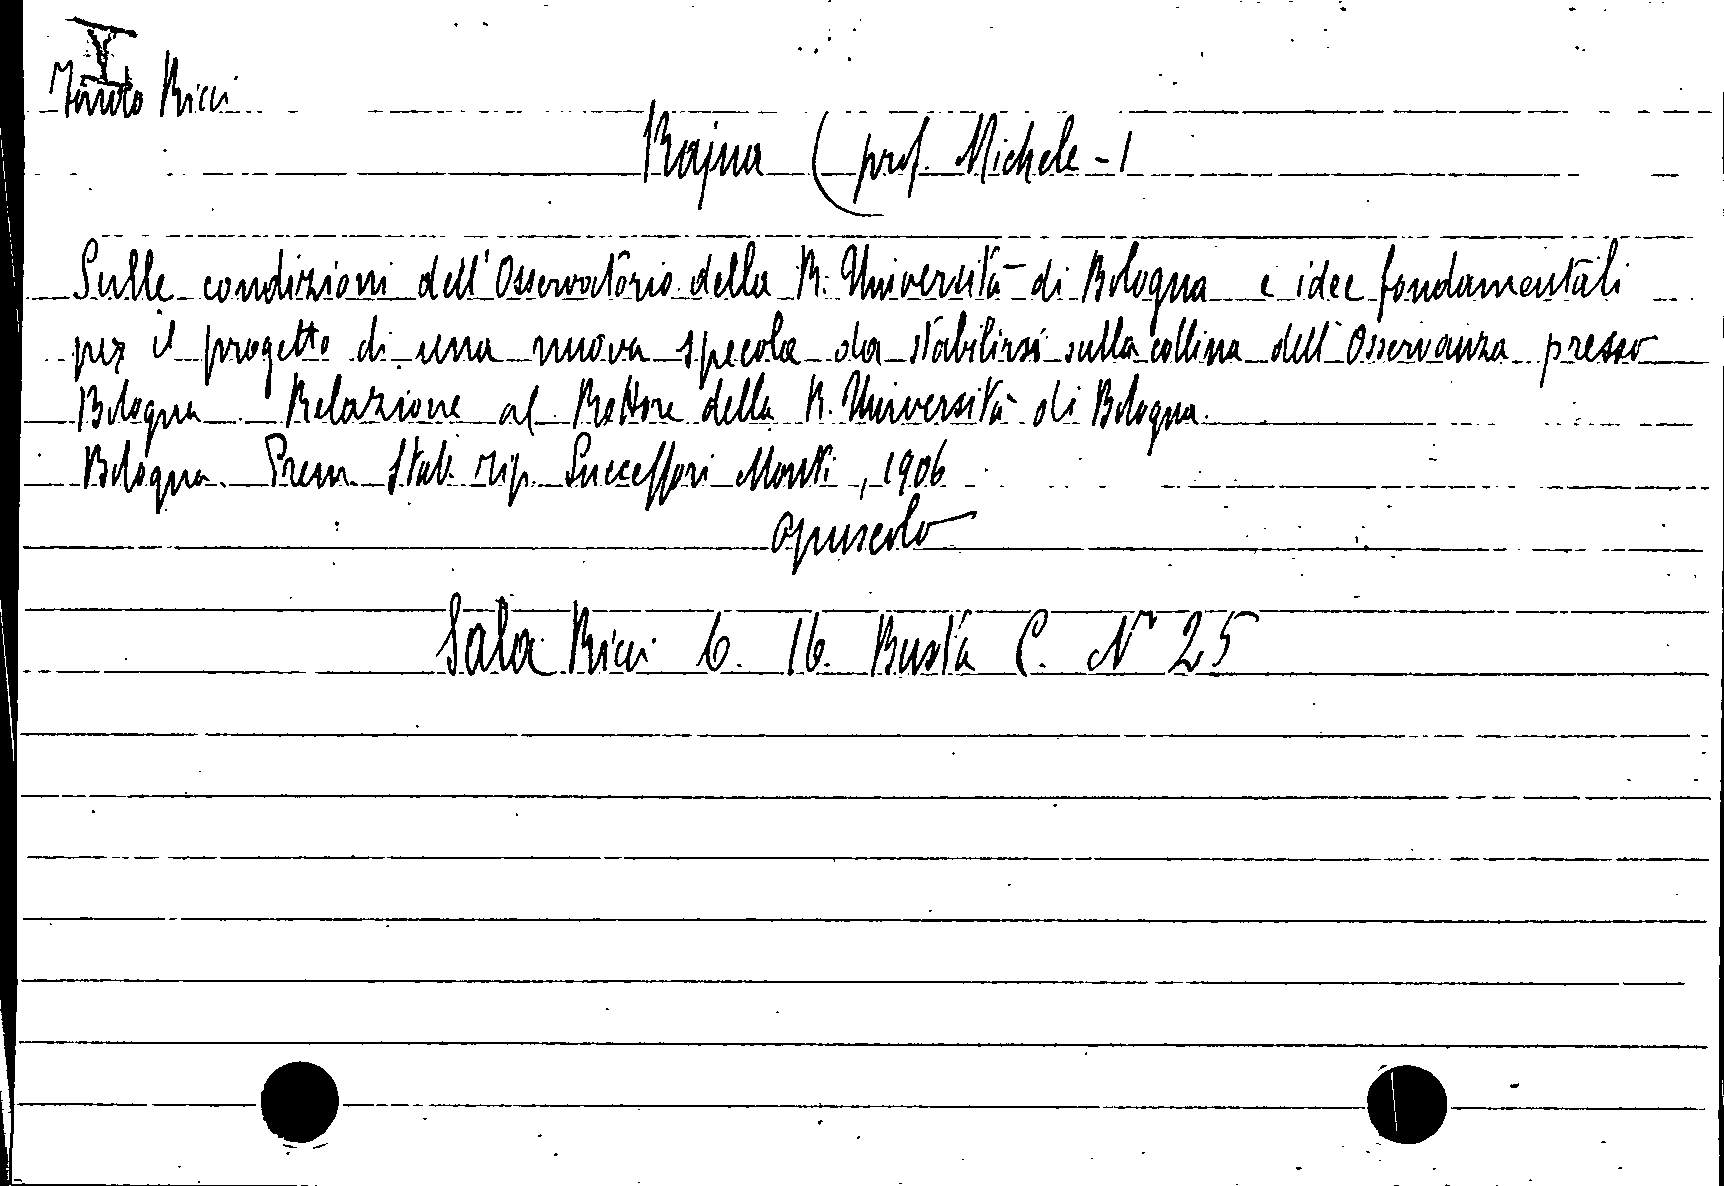 I
Fondo Ricci
Rajna (prof. Michele-)
Sulle condizioni dell'Osservatorio della R. Università di Bologna e idee fondamentali
per il progetto di una nuova specola da stabilirsi sulla collina dell'Osservanza presso
Bologna. Relazione al Rettore della R. Università di Bologna.
Bologna. Prem. Stab. Tip. Successori Monti, 1906
opuscolo
Sala Ricci 6. 16. Busta C. N° 25